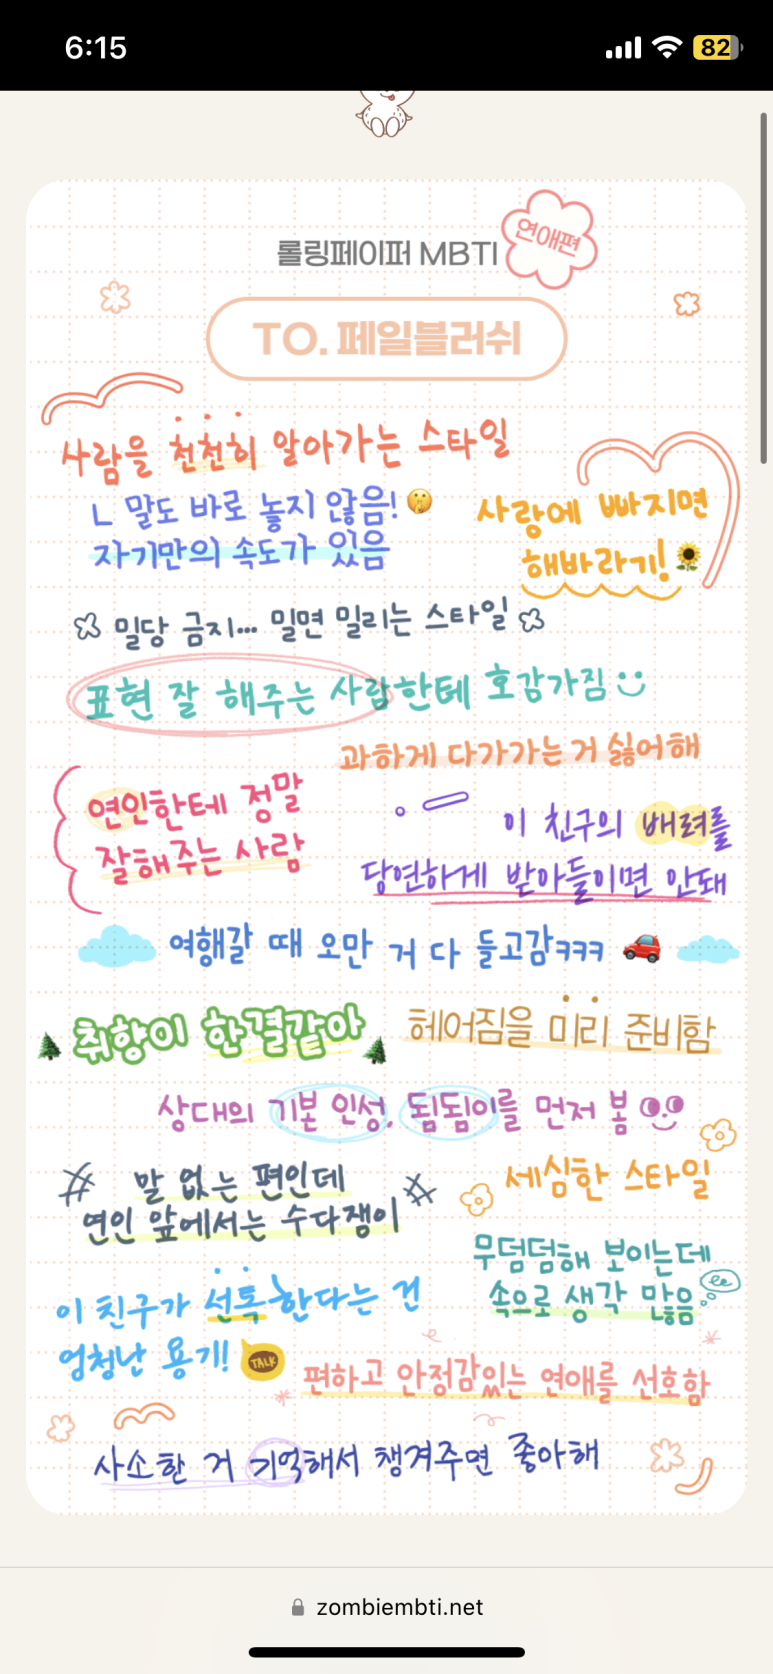 6:15
82
롤링페이퍼 MBTI
연애편
TO. 페일블러쉬
사람을 천천히 알아가는 스타일
ㄴ 말도 바로 놓지 않음!
자기만의 속도가 있음
사랑에 빠지면
해바라기!
밀당 금지... 밀면 밀리는 스타일
표현 잘 해주는 사람한테 호감가짐
과하게 다가가는거 싫어해
연인한테 정말
잘해주는 사람
이 친구의 배려를
당연하게 받아들이면 안돼
여행갈 때 오만 거 다 들고감ㅋㅋㅋ
취향이 한결같아
헤어짐을 미리 준비함
상대의 기본 인성, 됨됨이를 먼저 봄
말 없는 편인데
연인 앞에서는 수다쟁이
세심한 스타일
무덤덤해 보이는데
속으로 생각 많음
이 친구가 선톡한다는 건
엄청난 용기!
TALK
편하고 안정감있는 연애를 선호함
사소한 거 기억해서 챙겨주면 좋아해
zombiembti.net